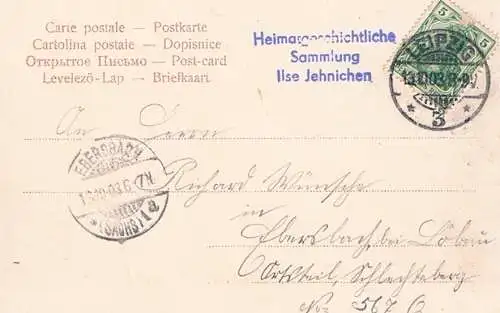 Carte postale – Postkarte
Cartolina postale – Dopisnice
Открытое Письмо – Post-card
Levelező-Lap – Briefkaart
Heimatgeschichtliche
Sammlung
Ilse Jehnichen
5 5
LEIPZIG
13.10.03. 8-9V.
* 3 *
EBERSBACH
13.10.03. 6-7N.
* (SACHS) 1 a
An Herrn
Richard Wünsche
in
Ebersbach, bei Löbau
Ortsteil, Schlechteberg
No: 567 B